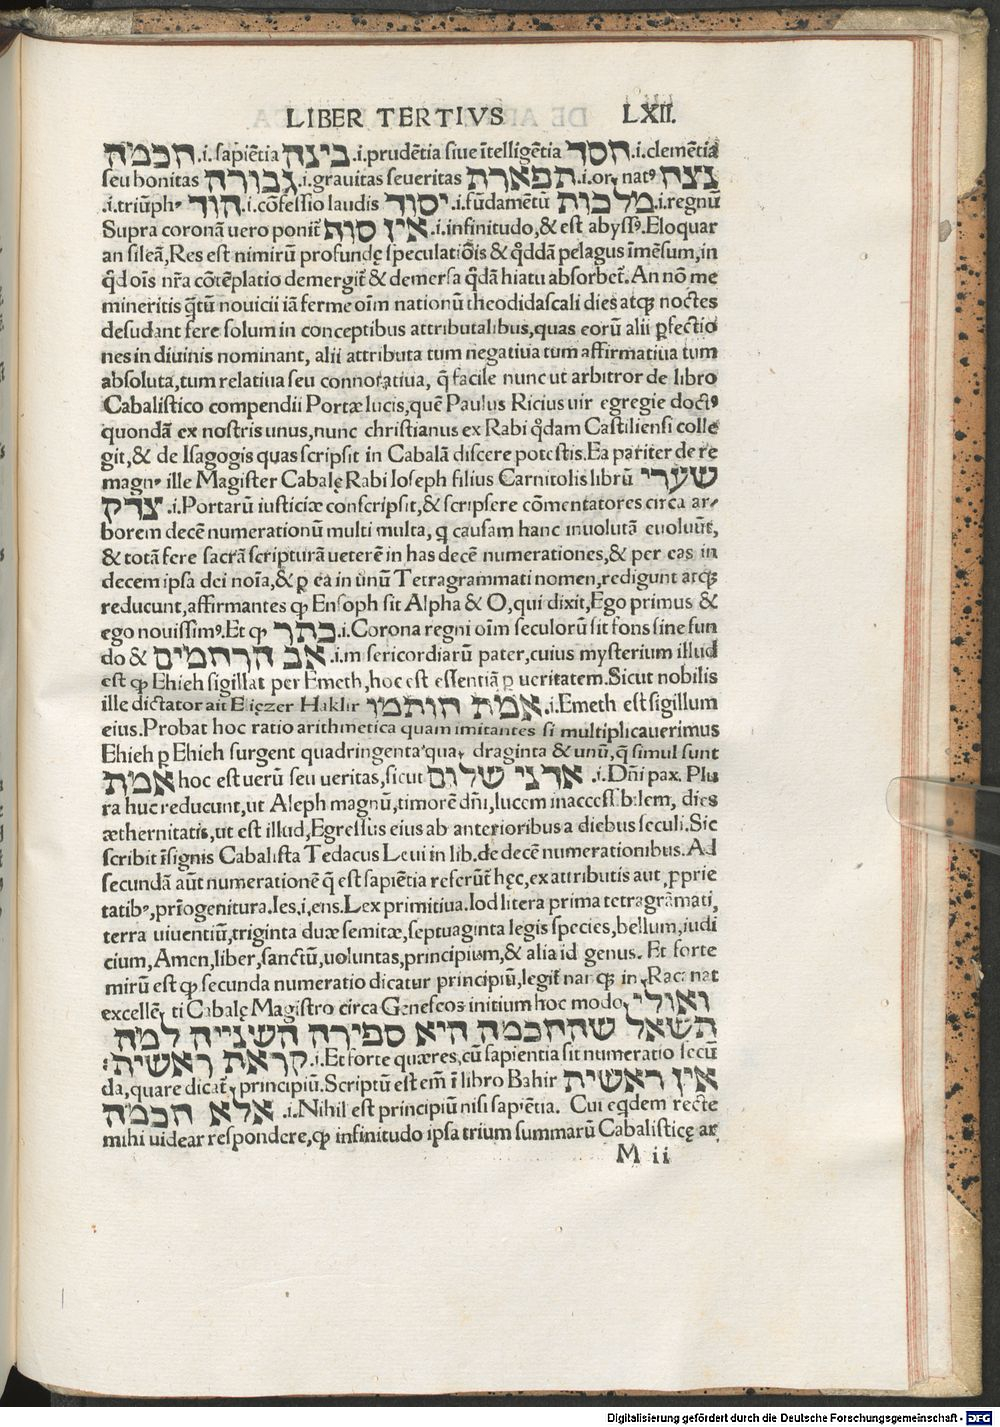 LIBER TERTIVS LXII.
חכמה.i.sapiẽtia בינה.i.prudẽtia siue ĩtelligẽtia חסד.i.clemẽtia
seu bonitas גבורה.i.grauitas seueritas תפארת.i.ornatꝰ נצח
.i.triũphꝰ הוד.i.cõfessio laudis יסוד.i.fũdamẽtũ מלכות.i.regnũ
Supra coronã uero ponit᷑ אין סוף.i.infinitudo,& est abyssꝰ.Eloquar
an sileã,Res est nimirũ profundę speculatiõis & q̃ddã pelagus ĩmẽsum,in
q̃d oĩs nr̃a cõtẽplatio demergit᷑ & demersa q̃dã hiatu absorbet᷑.An nõ me
mineritis q̃tũ nouicii iã ferme oĩm nationũ theodidascali dies atqꝫ noctes
desudant fere solum in conceptibus attributalibus,quas eorũ alii ꝑfectio
nes in diuinis nominant, alii attributa tum negatiua tum affirmatiua tum
absoluta,tum relatiua seu connotatiua, q̃ facile nunc ut arbitror de libro
Cabalistico compendii Portæ lucis,quẽ Paulus Ricius uir egregie doctꝰ
quondã ex nostris unus,nunc christianus ex Rabi q̃dam Castiliensi colle
git,& de Isagogis quas scripsit in Cabalã discere potestis.Ea pariter de re
magnꝰ ille Magister Cabalę Rabi Ioseph filius Carnitolis librũ שערי
צדק.i.Portarũ iusticiæ conscripsit,& scripsere cõmentatores circa ar-
borem decẽ numerationũ multi multa, q causam hanc inuolutã euoluũt,
& totã fere sacrã scripturã ueterẽ in has decẽ numerationes,& per eas in
decem ipsa dei noĩa,& ꝑ ea in unũ Tetragrammati nomen,redigunt atqꝫ
reducunt,affirmantes ꝙ Ensoph sit Alpha & O,qui dixit,Ego primus &
ego nouissimꝰ.Et ꝙ כתר.i.Corona regni oĩm seculorũ sit fons sine fun
do & אב הרחמים.i.misericordiarũ pater,cuius mysterium illud
est ꝙ Ehieh sigillat per Emeth,hoc est essentiã ꝑ ueritatem.Sicut nobilis
ille dictator ait Eliezer Haklir אמת חותמו.i.Emeth est sigillum
eius.Probat hoc ratio arithmetica quam imitantes si multiplicauerimus
Ehieh ꝑ Ehieh surgent quadringenta qua draginta & unũ,q̃ simul sunt
אמת hoc est uerũ seu ueritas,sicut אדני שלום.i.Dñi pax. Plu
ra huc reducunt,ut Aleph magnũ,timorẽ dñi,lucem inaccessibilem, dies
æthernitatis,ut est illud,Egressus eius ab anterioribus a diebus seculi.Sic
scribit ĩsignis Cabalista Tedacus Leui in lib.de decẽ numerationibus.Ad
secundã aũt numerationẽ q̃ est sapiẽtia referũt hęc,ex attributis aut ꝓprie
tatibꝰ,prĩogenitura.Ies.i.ens.Lex primitiua.Iod litera prima tetragrãmati,
terra uiuentiũ,triginta duæ semitæ,septuaginta legis species,bellum,iudi
cium,Amen,liber,sanctũ,uoluntas,principium,& alia id genus. Et forte
mirũ est ꝙ secunda numeratio dicatur principiũ,legit᷑ nanqꝫ in Racanat
excellẽ ti Cabalę Magistro circa Geneseos initium hoc modo, ואולי
תשאל שהחכמה היא ספירה השנייה למה
קראת ראשית:.i.Et forte quæres,cũ sapientia sit numeratio secũ
da,quare dicat᷑ principiũ.Scriptũ est em̃ ĩ libro Bahir אין ראשית
אלא חכמה.i.Nihil est principiũ nisi sapiẽtia. Cui eq̃dem recte
mihi uidear respondere,ꝙ infinitudo ipsa trium summarũ Cabalisticę ar
M ii
Digitalisierung gefördert durch die Deutsche Forschungsgemeinschaft - DFG